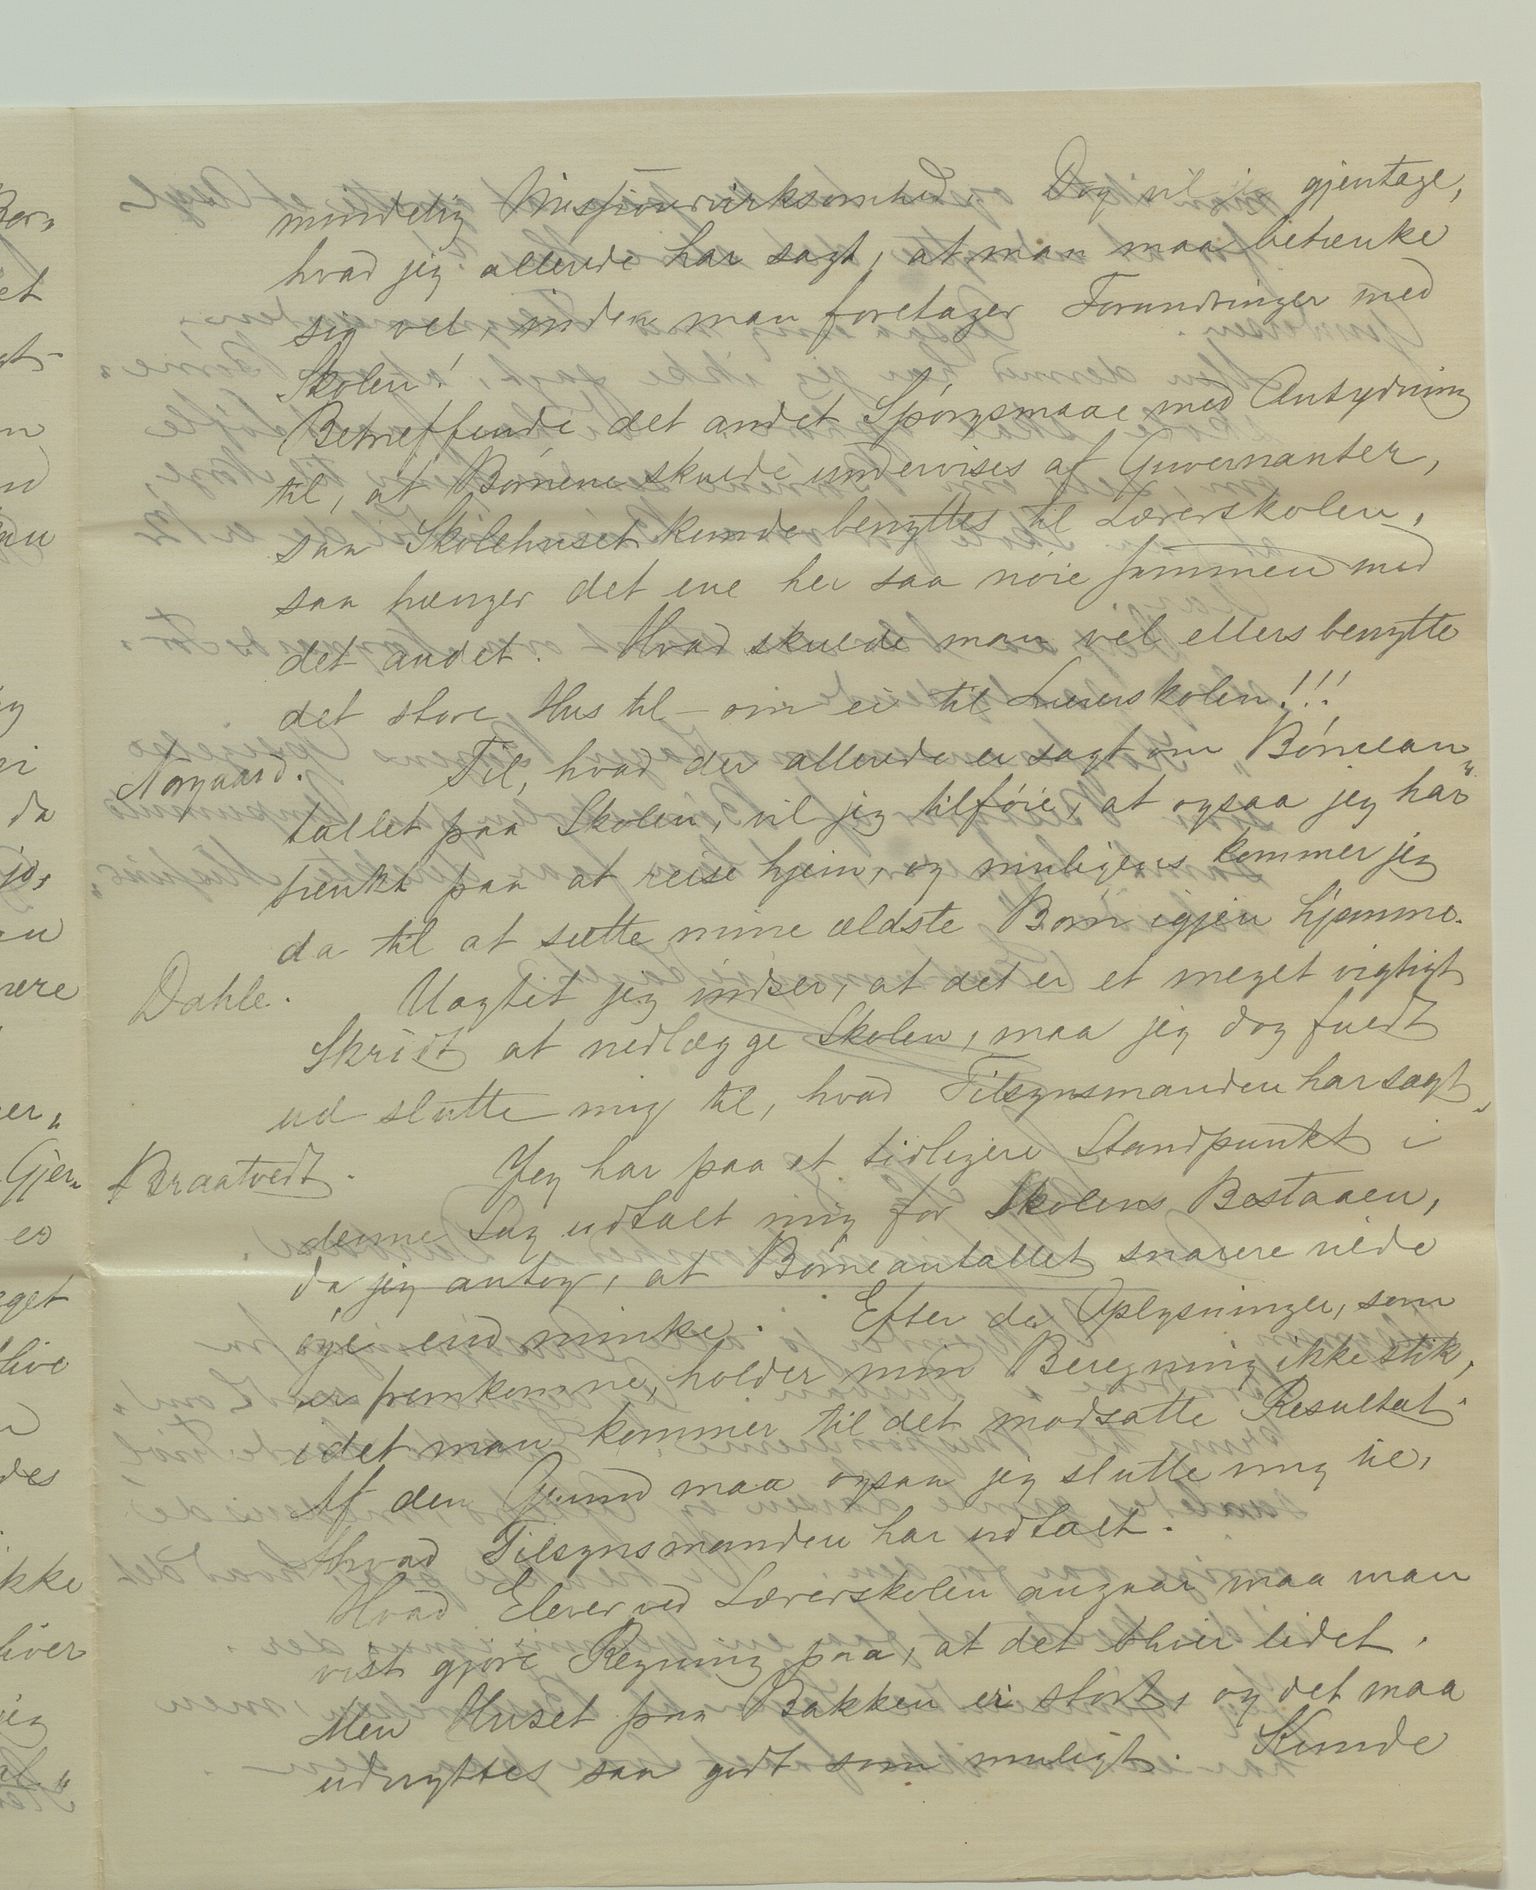 mundelig Missionsvirksomhed. Dog vil jeg gjentage,
hvad jeg allerede har sagt, at man maa betænke
sig vel, inden man foretager Forandringer med
Skolen!
Betræffende det andet Spörgsmaal med Antydning
til, at Börnene skulde undervises af Guvernanter,
saa Skolehuset kunde benyttes til Lærerskolen,
saa hænger det ene her saa nöie sammen med
det andet. Hvad skulde man vel ellers benytte
det store Hus til – om ei til Lærerskolen!!!
Norgaard. Til, hvad der allerede er sagt om Börnean„
tallet paa Skolen, vil jeg tilföie, at ogsaa jeg har
tænkt paa at reise hjem, og muligens kommer jeg
da til at sætte mine ældste Börn igjen hjemme.
Dahle. Uagtet jeg indser, at det er et meget vigtigt
Skridt at nedlægge Skolen, maa jeg dog fuldt
ud slutte mig til, hvad Tilsynsmanden har sagt.
Braatvedt. Jeg har paa et tidligere Standpunkt i
denne Sag udtalt mig for Skolens Bestaaen,
da jeg antog, at Börneantallet snarere vilde
öge end minke. Efter de Oplysninger, som
er fremkomne, holder min Beregning ikke stik,
idet man kommer til det modsatte Resultat.
Af den Grund maa ogsaa jeg slutte mig til,
hvad Tilsynsmanden har udtalt.
Hvad Elever ved Lærerskolen angaar maa man
vist gjöre Regning paa, at det bliver lidet.
Men Huset paa Bakken er stort, og det maa
udnyttes saa godt som muligt. Kunde